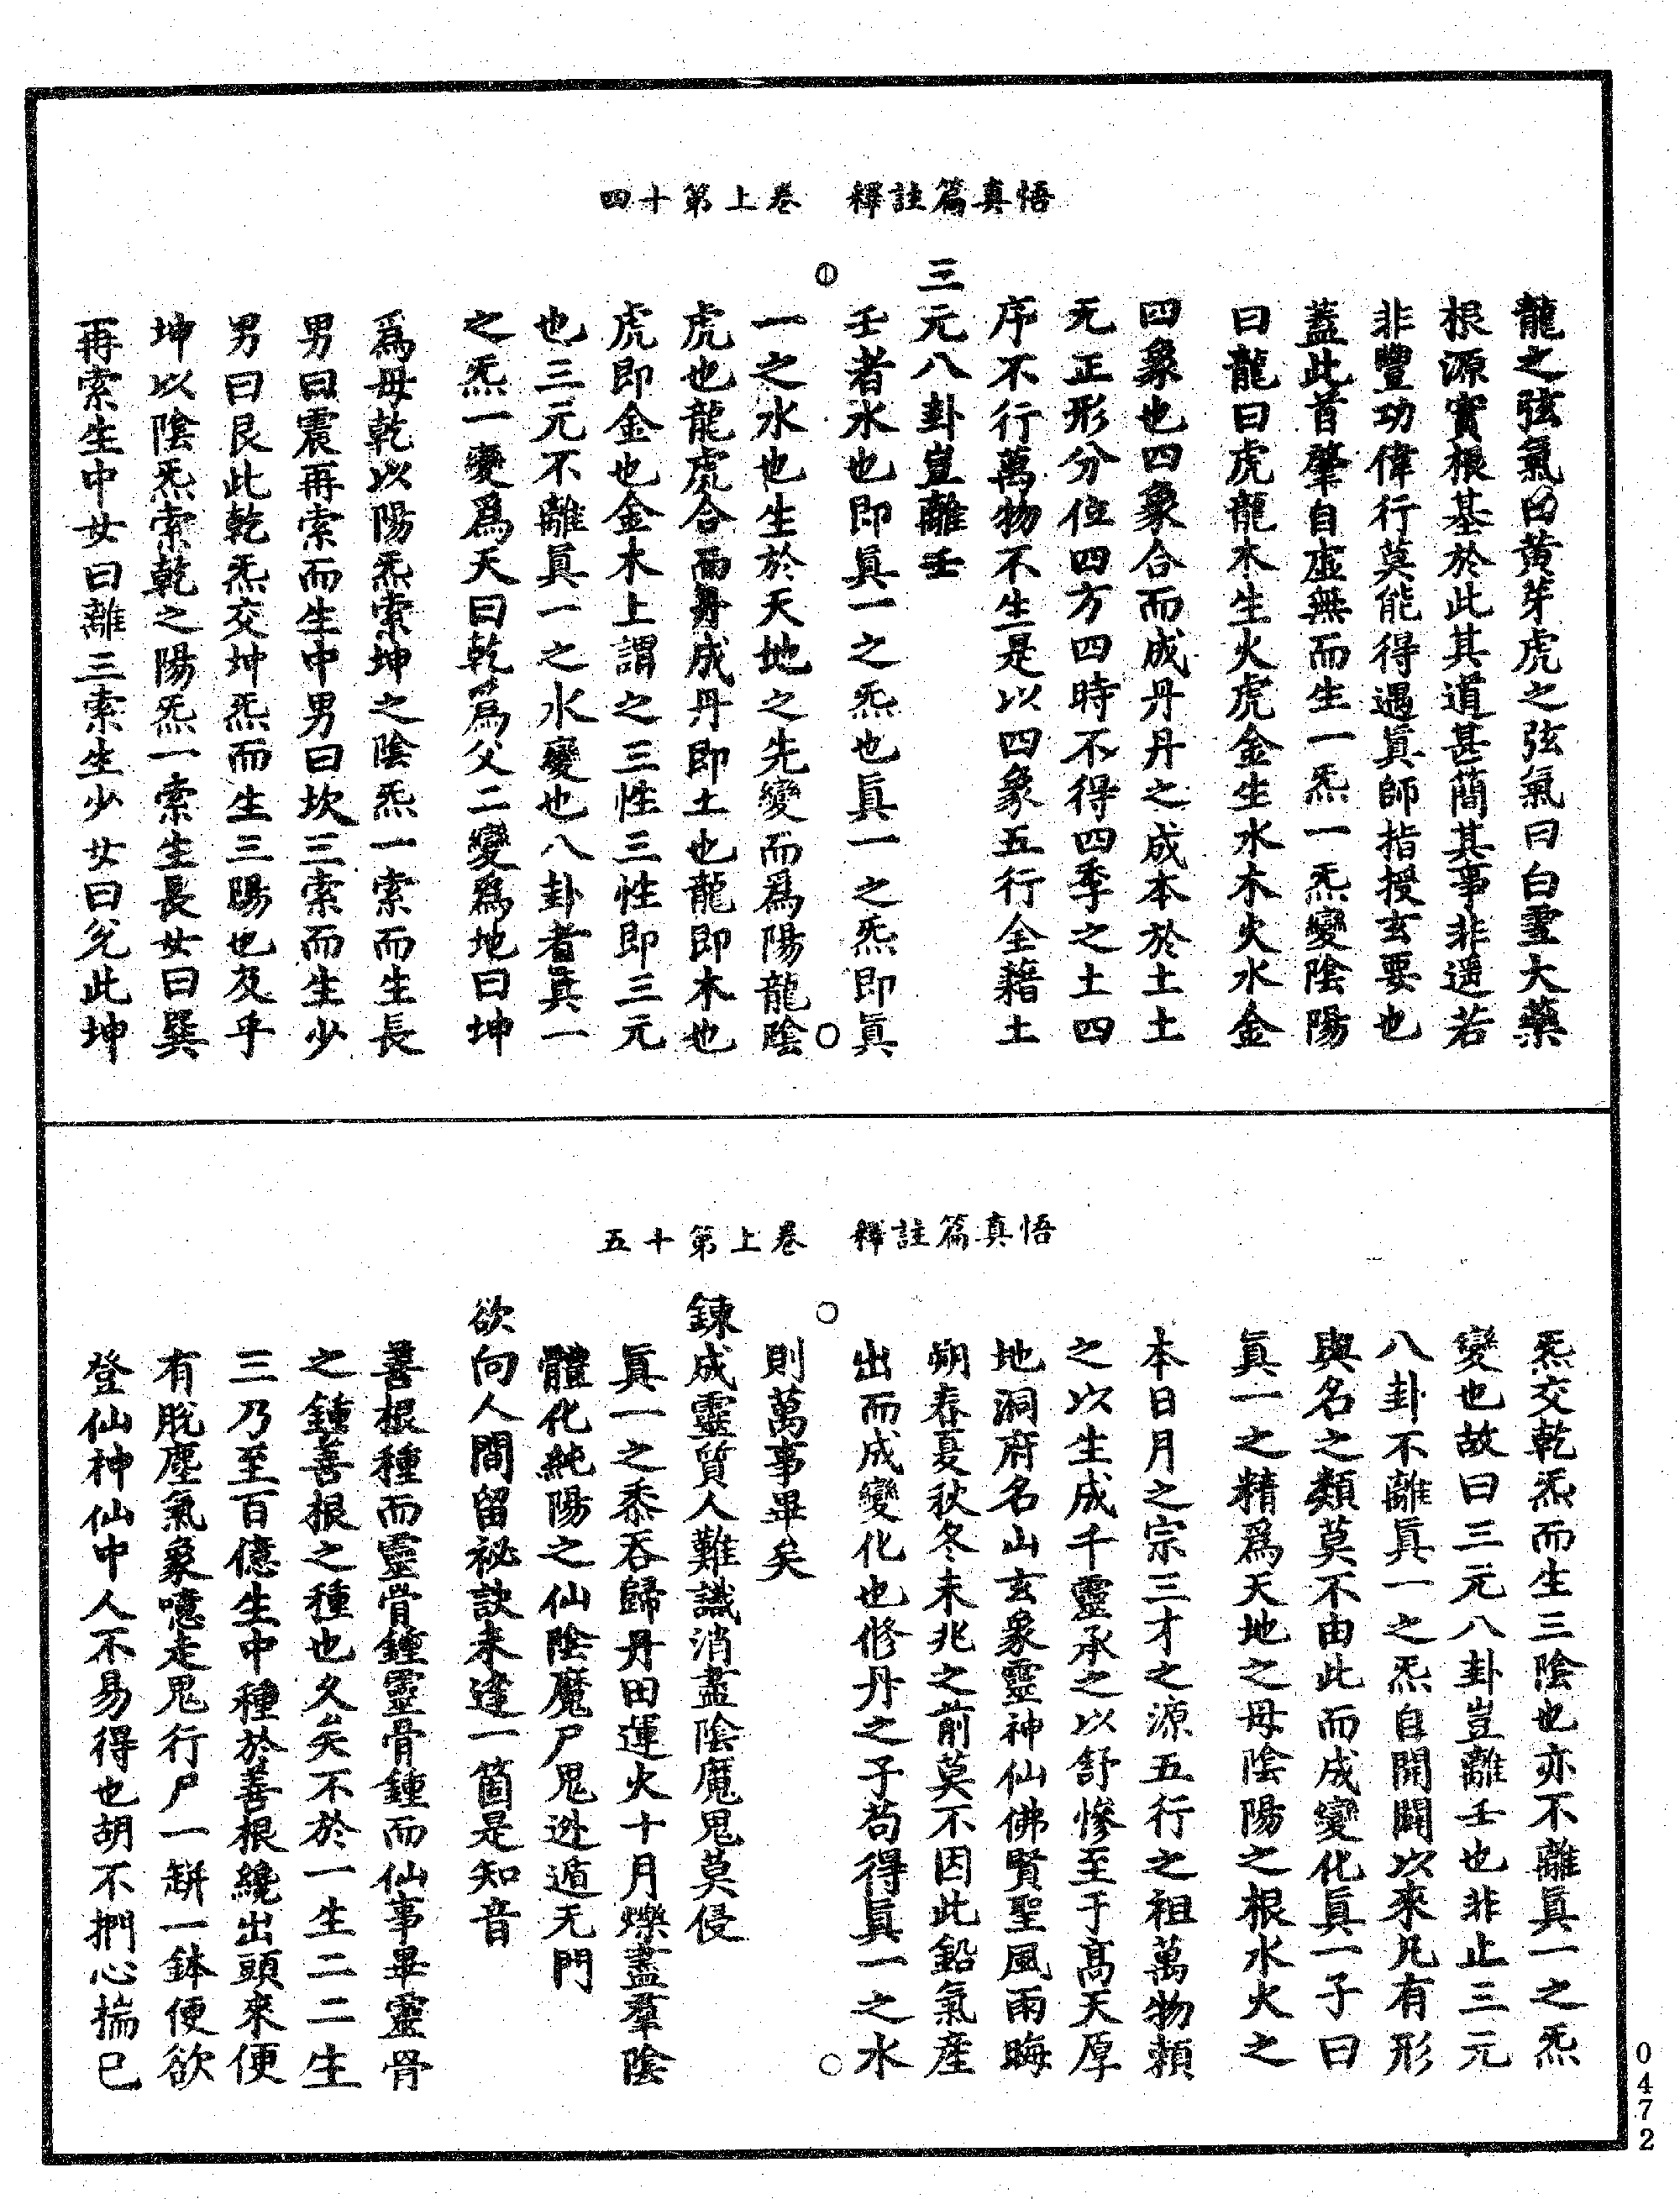 悟真篇註釋　卷上第十四
龍之弦氣曰黃芽虎之弦氣曰白雪大藥
根源實根基於此其道甚簡其事非遥若
非豐功偉行莫能得遇眞師指授玄要也
蓋此首肇自虛無而生一炁一炁變陰陽
曰龍曰虎龍木生火虎金生水木火水金
四象也四象合而成丹丹之成本於土土
无正形分位四方四時不得四季之土四
序不行萬物不生是以四象五行全藉土
三元八卦豈離壬
壬者水也即眞一之炁也眞一之炁即眞
一之水也生於天地之先變而爲陽龍陰
虎也龍虎合而丹成丹即土也龍即木也
虎即金也金木土謂之三性三性即三元
也三元不離眞一之水變也八卦者眞一
之炁一變爲天曰乾爲父二變爲地曰坤
爲母乾以陽炁索坤之陰炁一索而生長
男曰震再索而生中男曰坎三索而生少
男曰艮此乾炁交坤炁而生三陽也及乎
坤以陰炁索乾之陽炁一索生長女曰巽
再索生中女曰離三索生少女曰兌此坤
悟真篇註釋　卷上第十五
炁交乾炁而生三陰也亦不離眞一之炁
變也故曰三元八卦豈離壬也非止三元
八卦不離眞一之炁自開闢以來凡有形
與名之類莫不由此而成變化眞一子曰
眞一之精爲天地之母陰陽之根水火之
本日月之宗三才之源五行之祖萬物賴
之以生成千靈承之以舒慘至于高天厚
地洞府名山玄象靈神仙佛賢聖風雨晦
朔春夏秋冬未兆之前莫不因此鉛氣產
出而成變化也修丹之子苟得眞一之水
則萬事畢矣
鍊成靈質人難識消盡陰魔鬼莫侵
眞一之黍吞歸丹田運火十月爍盡羣陰
體化純陽之仙陰魔尸鬼逃遁无門
欲向人間留祕訣未逢一箇是知音
善根種而靈骨鍾靈骨鍾而仙事畢靈骨
之鍾善根之種也久矣不於一生二二生
三乃至百億生中種於善根纔出頭來便
有脫塵氣象噫走鬼行尸一缾一鉢便欲
登仙神仙中人不易得也胡不捫心揣己
0472